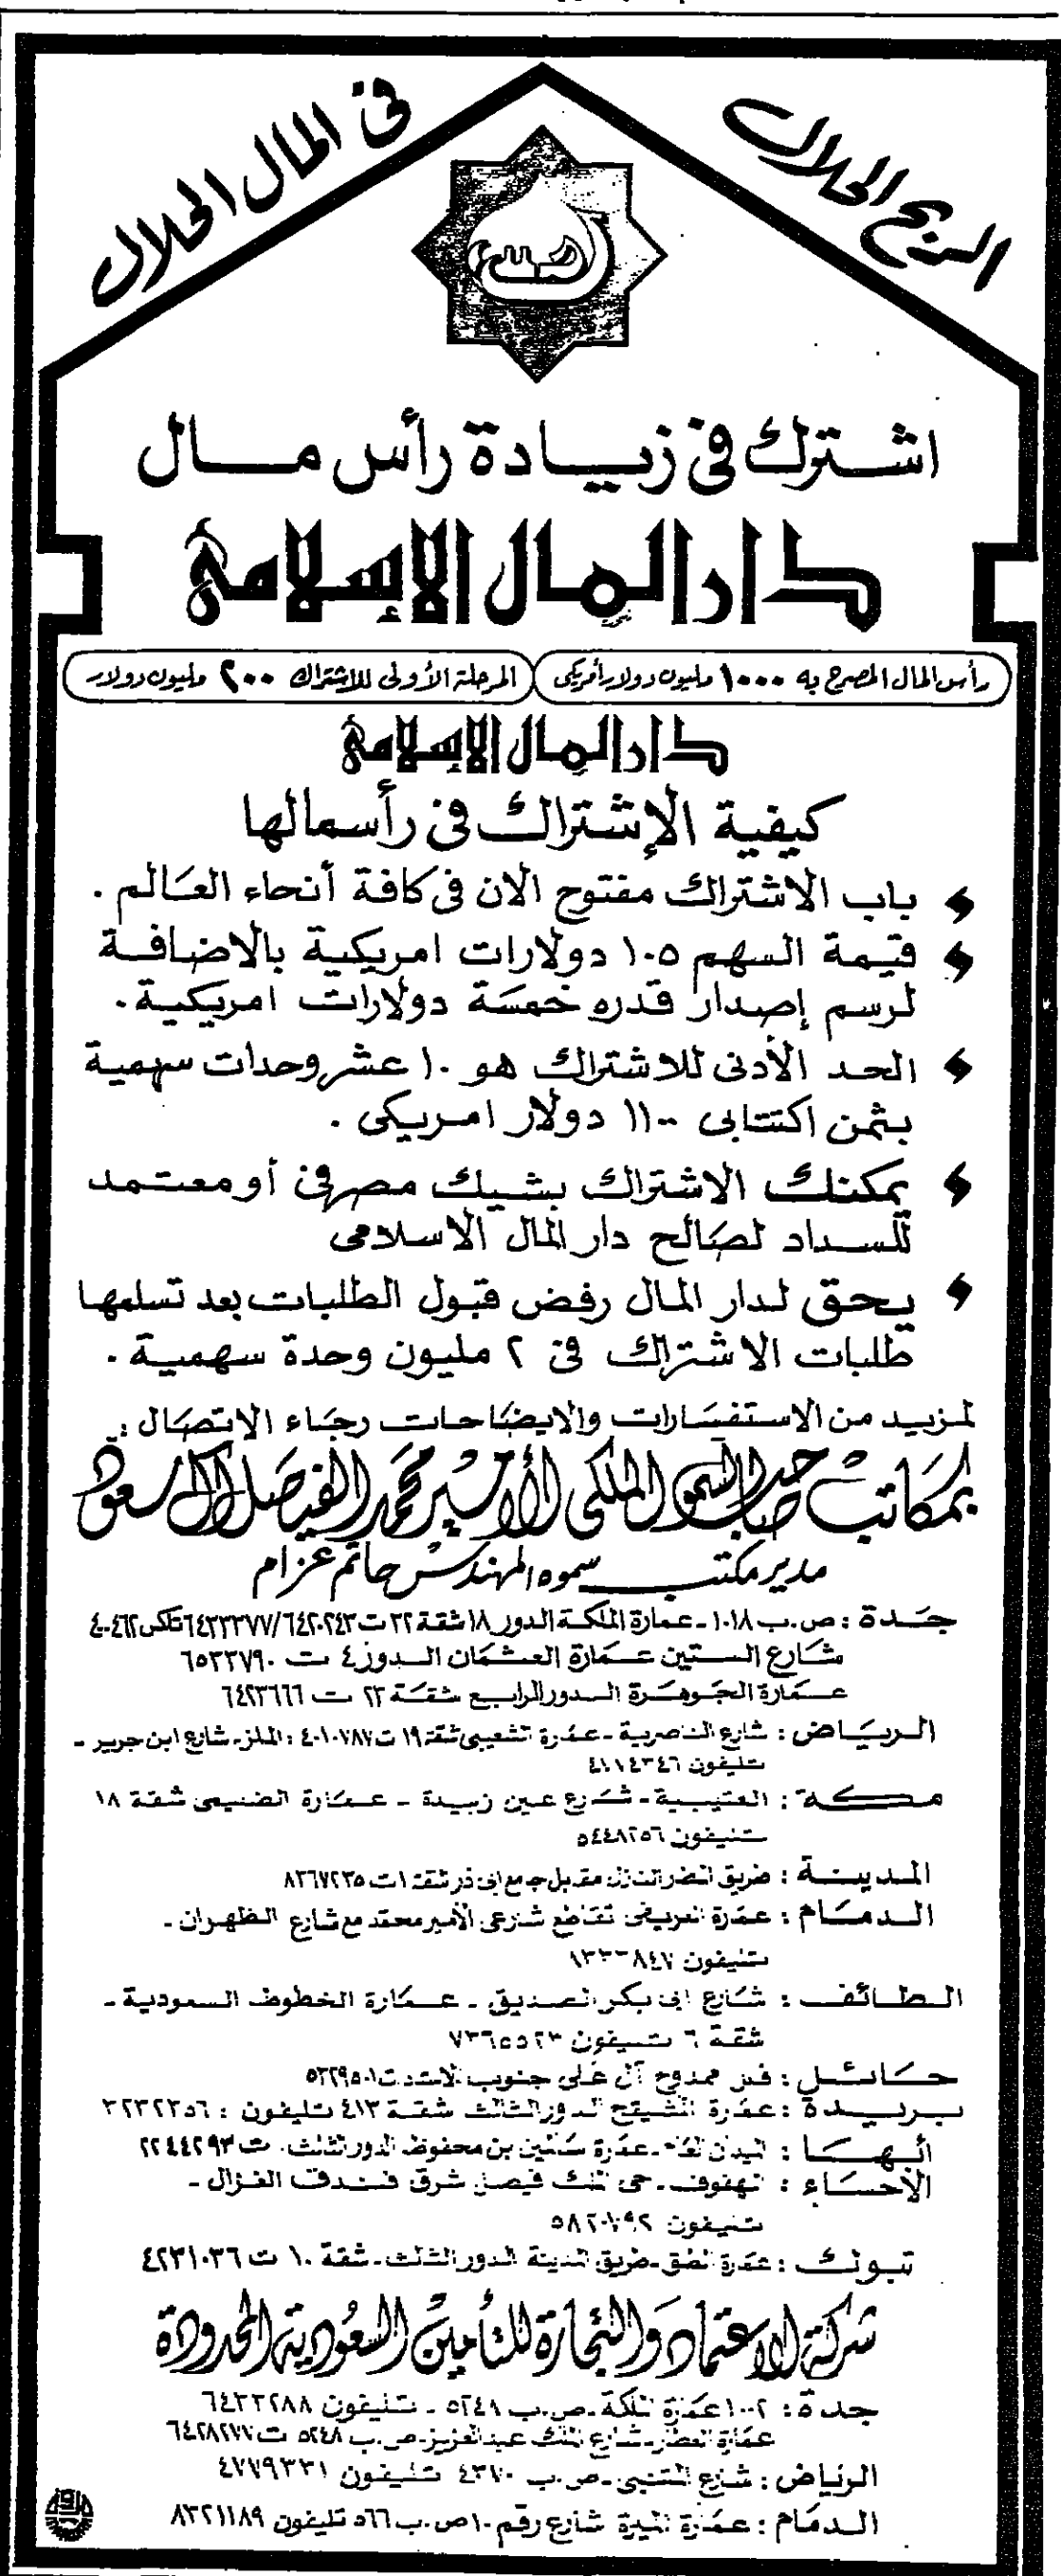 الربح الحلال
في المال الحلال
اشترك في زيادة رأس مال
دار المال الإسلامي
رأس المال المصرح به ١٠٠٠ مليون دولار أمريكي
المرحلة الأولى للاشتراك ٢٠٠ مليون دولار
دار المال الإسلامي
كيفية الإشتراك في رأسمالها
باب الاشتراك مفتوح الان في كافة أنحاء العالم .
قيمة السهم ١٠٥ دولارات امريكية بالاضافة
لرسم إصدار قدره خمسة دولارات امريكية .
الحد الأدنى للاشتراك هو ١٠ عشر وحدات سهمية
بثمن اكتتابي ١١٠٠ دولار امريكي .
يمكنك الاشتراك بشيك مصرفي أو معتمد
للسداد لصالح دار المال الاسلامي
يحق لدار المال رفض قبول الطلبات بعد تسلمها
طلبات الاشتراك في ٢ مليون وحدة سهمية .
لمزيد من الاستفسارات والايضاحات رجاء الاتصال :
بمكاتب صاحب السمو الملكي الأمير محمد الفيصل آل سعود
مدير مكتب سموه المهندس حاتم عزام
جدة : ص.ب ١٠١٨ - عمارة الملكة الدور ١٨ شقة ٢٢ ت ٦٤٢٠٢٤٣/٦٤٣٣٣٧٧ تلكس ٤٠٠٤٦٢
شارع الستين عمارة العثمان الدور ٤ ت ٦٥٣٣٧٩٠
عمارة الجوهرة الدور الرابع شقة ٢٣ ت ٦٤٢٣٦٦٦
الرياض : شارع الناصرية - عمارة الشعيبي شقة ١٩ ت ٤٠١٠٧٨٧ : الملز - شارع ابن جرير -
تليفون
مكة : العتيبية - شارع عين زبيدة - عمارة شقة ١٨
تليفون ٥٤٤٨٢٥٦
المدينة : طريق مقابل جامع ابي ذر شقة ١ ت ٨٣٦٧٢٣٥
الدمام : عمارة تقاطع شارعي الأمير محمد مع شارع الظهران -
تليفون
الطائف : شارع ابي بكر الصديق - عمارة الخطوط السعودية -
شقة ٦ تليفون
حائل : قصر ممدوح آل علي جنوب ت ٥٣٢٩٥٠١
بريدة : عمارة الدور الثالث شقة ٤١٣ تليفون : ٣٢٣٢٣٥٦
أبها : الميدان العام - عمارة بن محفوظ الدور الثالث . ت ٢٢٤٤٢٩٣
الاحساء : الهفوف - حي الملك فيصل شرق فندق الغزال -
تليفون
تبوك : عمارة - طريق المدينة الدور الثالث - شقة ١٠ ت ٤٢٣١٠٣٦
شركة الاعتماد والتجارة للتأمين السعودية المحدودة
جدة : ١٠٠٢ عمارة الملكة - ص.ب ٥٢٤٨ - تليفون ٦٤٣٣٢٨٨
عمارة العطار - شارع الملك عبدالعزيز - ص.ب ٥٢٤٨ ت ٦٤٢٨٢٧٧
الرياض : شارع المتنبي - ص.ب ٤٣٧٠ تليفون ٤٧٧٩٣٣١
الدمام : عمارة شارع رقم ١٠ ص.ب ٥٦٦ تليفون ٨٣٢١١٨٩